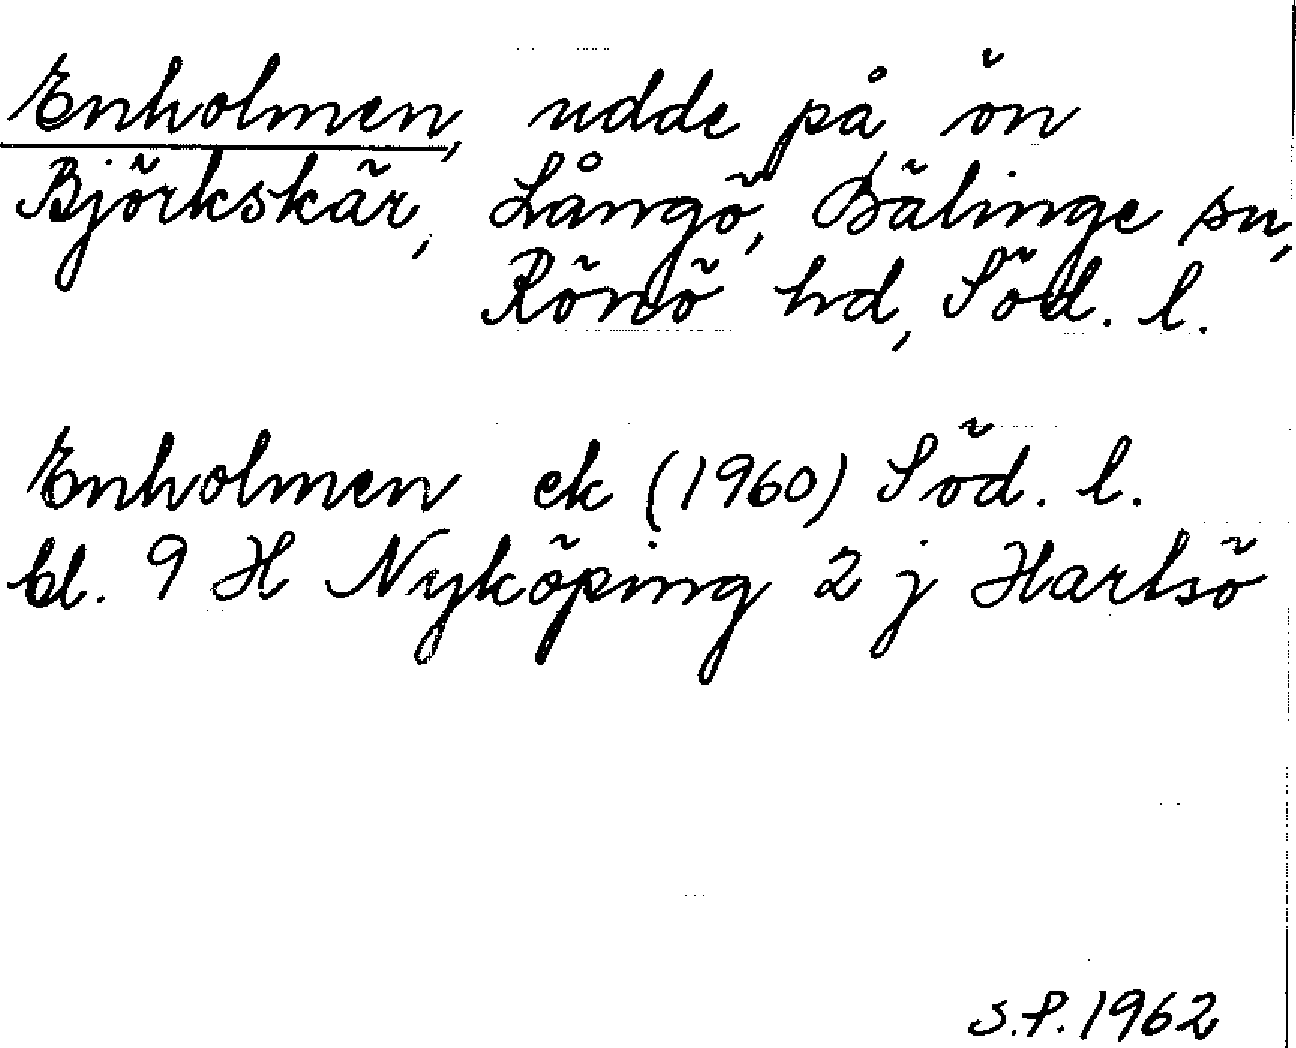 Enholmen, udde på ön
Björkskär, Långö, Bälinge sn,
Rönö hd, Söd. l.
Enholmen ek (1960) Söd. l.
bl. 9 H Nyköping 2 j Hartsö
S.P. 1962